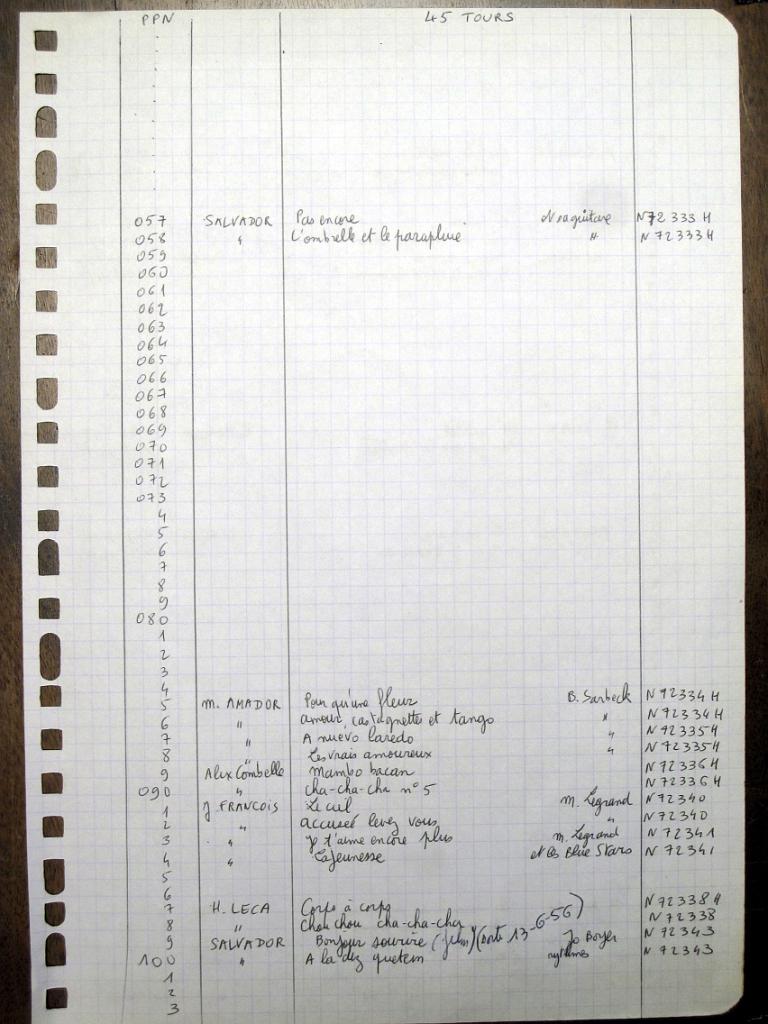 PPN 45 TOURS
057 SALVADOR Pas encore N 72 333 H
058 " L'ombrelle et le parapluie " N 72333H
059
060
061
062
063
064
065
066
067
068
069
070
071
072
073
4
5
6
7
8
9
080
1
2
3
4
5 M. AMADOR Pour qu'une fleur B. Sarbeck N 72334 H
6 " amour, castagnettes et tango " N 72334H
7 " A nuevo laredo " N 72335H
8 " Les vrais amoureux " N 72335H
9 Alix Combelle Mambo bacan N 72336H
090 " cha-cha-cha n° 5 N 72336H
1 J. FRANCOIS Le ciel M. Legrand N 72340
2 " accuseé levez vous " N 72340
3 " Je t'aime encore plus M. Legrand N 72341
4 " La jeunesse et les Blue Stars N 72341
5
6
7 H. LECA Corps à corps N 72338 H
8 " Chou chou cha-cha-cha N 72338
9 SALVADOR Bonjour sourire (film) (sorti 13-6-56) Jo Boyer N 72343
100 " A la diz rythmes N 72343
1
2
3